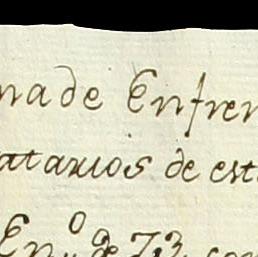 nade Enfren
atarios de est
En.º de 713